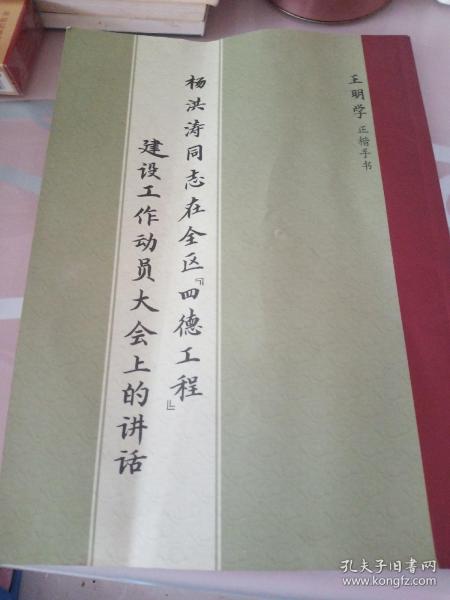 王明学 正楷手书
杨洪涛同志在全区『四德工程』
建设工作动员大会上的讲话
孔夫子旧书网
www.kongfz.com